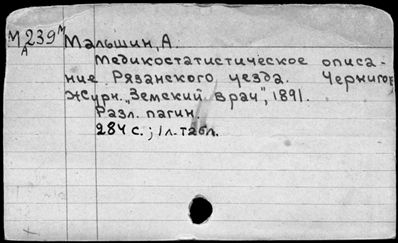 М 239 м Малышин, А.
А
Медикостатистическое описа-
ние Рязанского уезда. Чернигов
Журн. „Земский врач", 1891.
Разл. пагин.
284 с.; 1 л. табл.